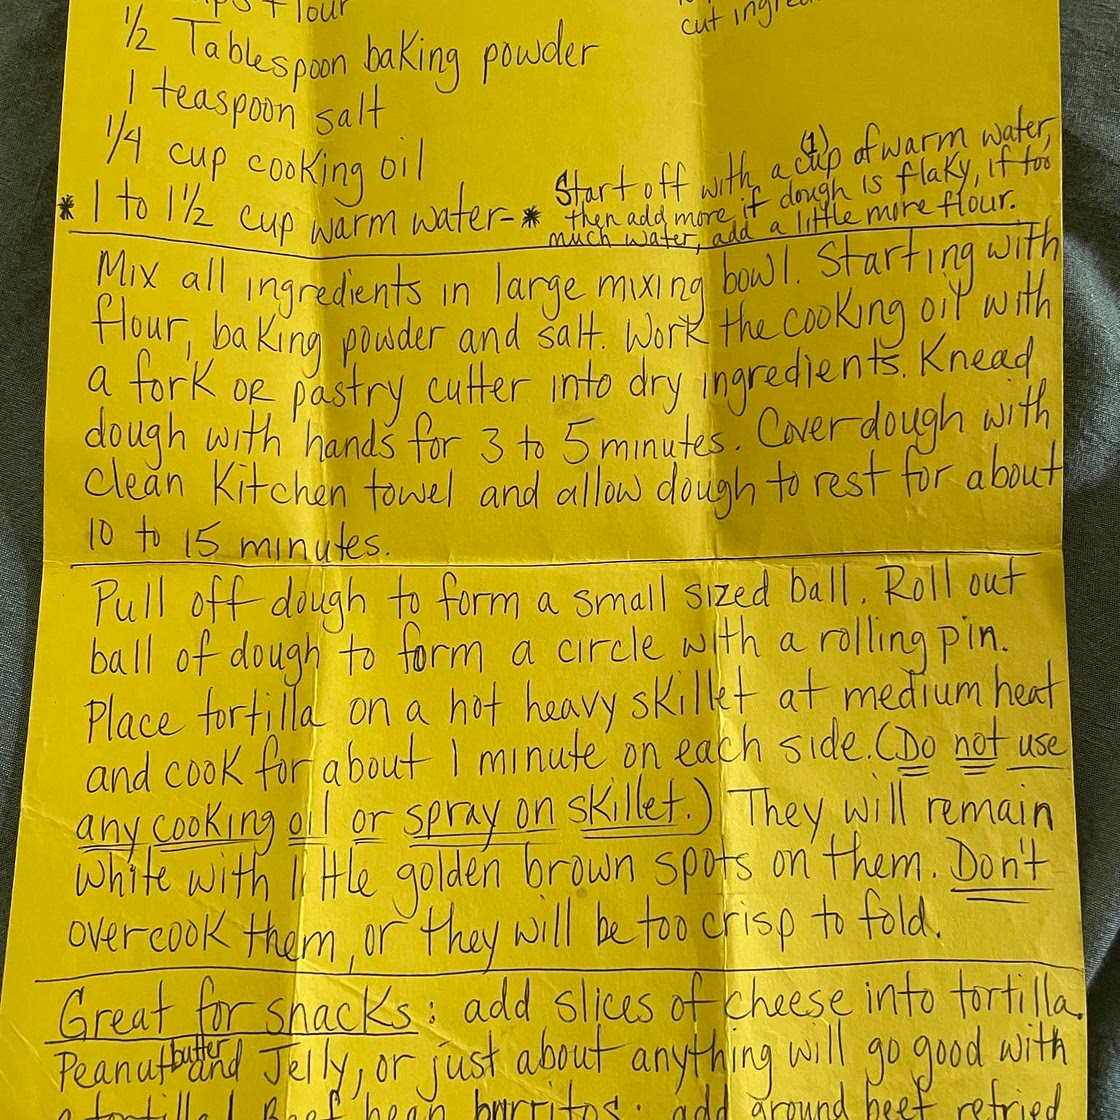 flour
cut
1/2 Tablespoon baking powder
1 teaspoon salt
1/4 cup cooking oil
* 1 to 1 1/2 cup warm water- *
Start off with a cup (1) of warm water,
then add more if dough is flaky, if too
much water, add a little more flour.
Mix all ingredients in large mixing bowl. Starting with
flour, baking powder and salt. Work the cooking oil with
a fork OR pastry cutter into dry ingredients. Knead
dough with hands for 3 to 5 minutes. Cover dough with
clean Kitchen towel and allow dough to rest for about
10 to 15 minutes.
Pull off dough to form a small sized ball. Roll out
ball of dough to form a circle with a rolling pin.
Place tortilla on a hot heavy skillet at medium heat
and cook for about 1 minute on each side. (Do not use
any cooking oil or spray on skillet.) They will remain
white with little golden brown spots on them. Don't
overcook them, or they will be too crisp to fold.
Great for snacks: add slices of cheese into tortilla.
Peanut butter and Jelly, or just about anything will go good with
a tortilla! Beef bean burritos: add ground beef, refried